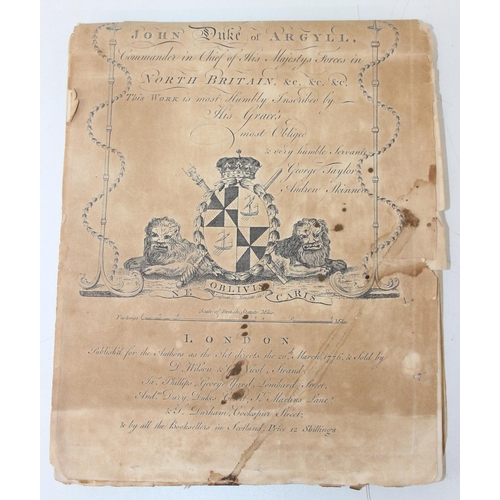 JOHN Duke of ARGYLL,
Commander in Chief of His Majestys Forces in
NORTH BRITAIN, &C, &C, &C,
This WORK is most Humbly Inscribed by
His Grace's
most Obliged
& very humble Servants
George Taylor
Andrew Skinner
NE OBLIVISCARIS
Scale of British Statute Miles
LONDON
Publish'd for the Authors as the Act directs the 20th March, 1776, & Sold by
D. Wilson & Nicol Strand;
Jas. Phillips George Yard, Lombard Street;
And. Dury Dukes Court, St. Martins Lane
& T. Durham, Cockspur Street;
& by all the Booksellers in Scotland, Price 12 Shillings